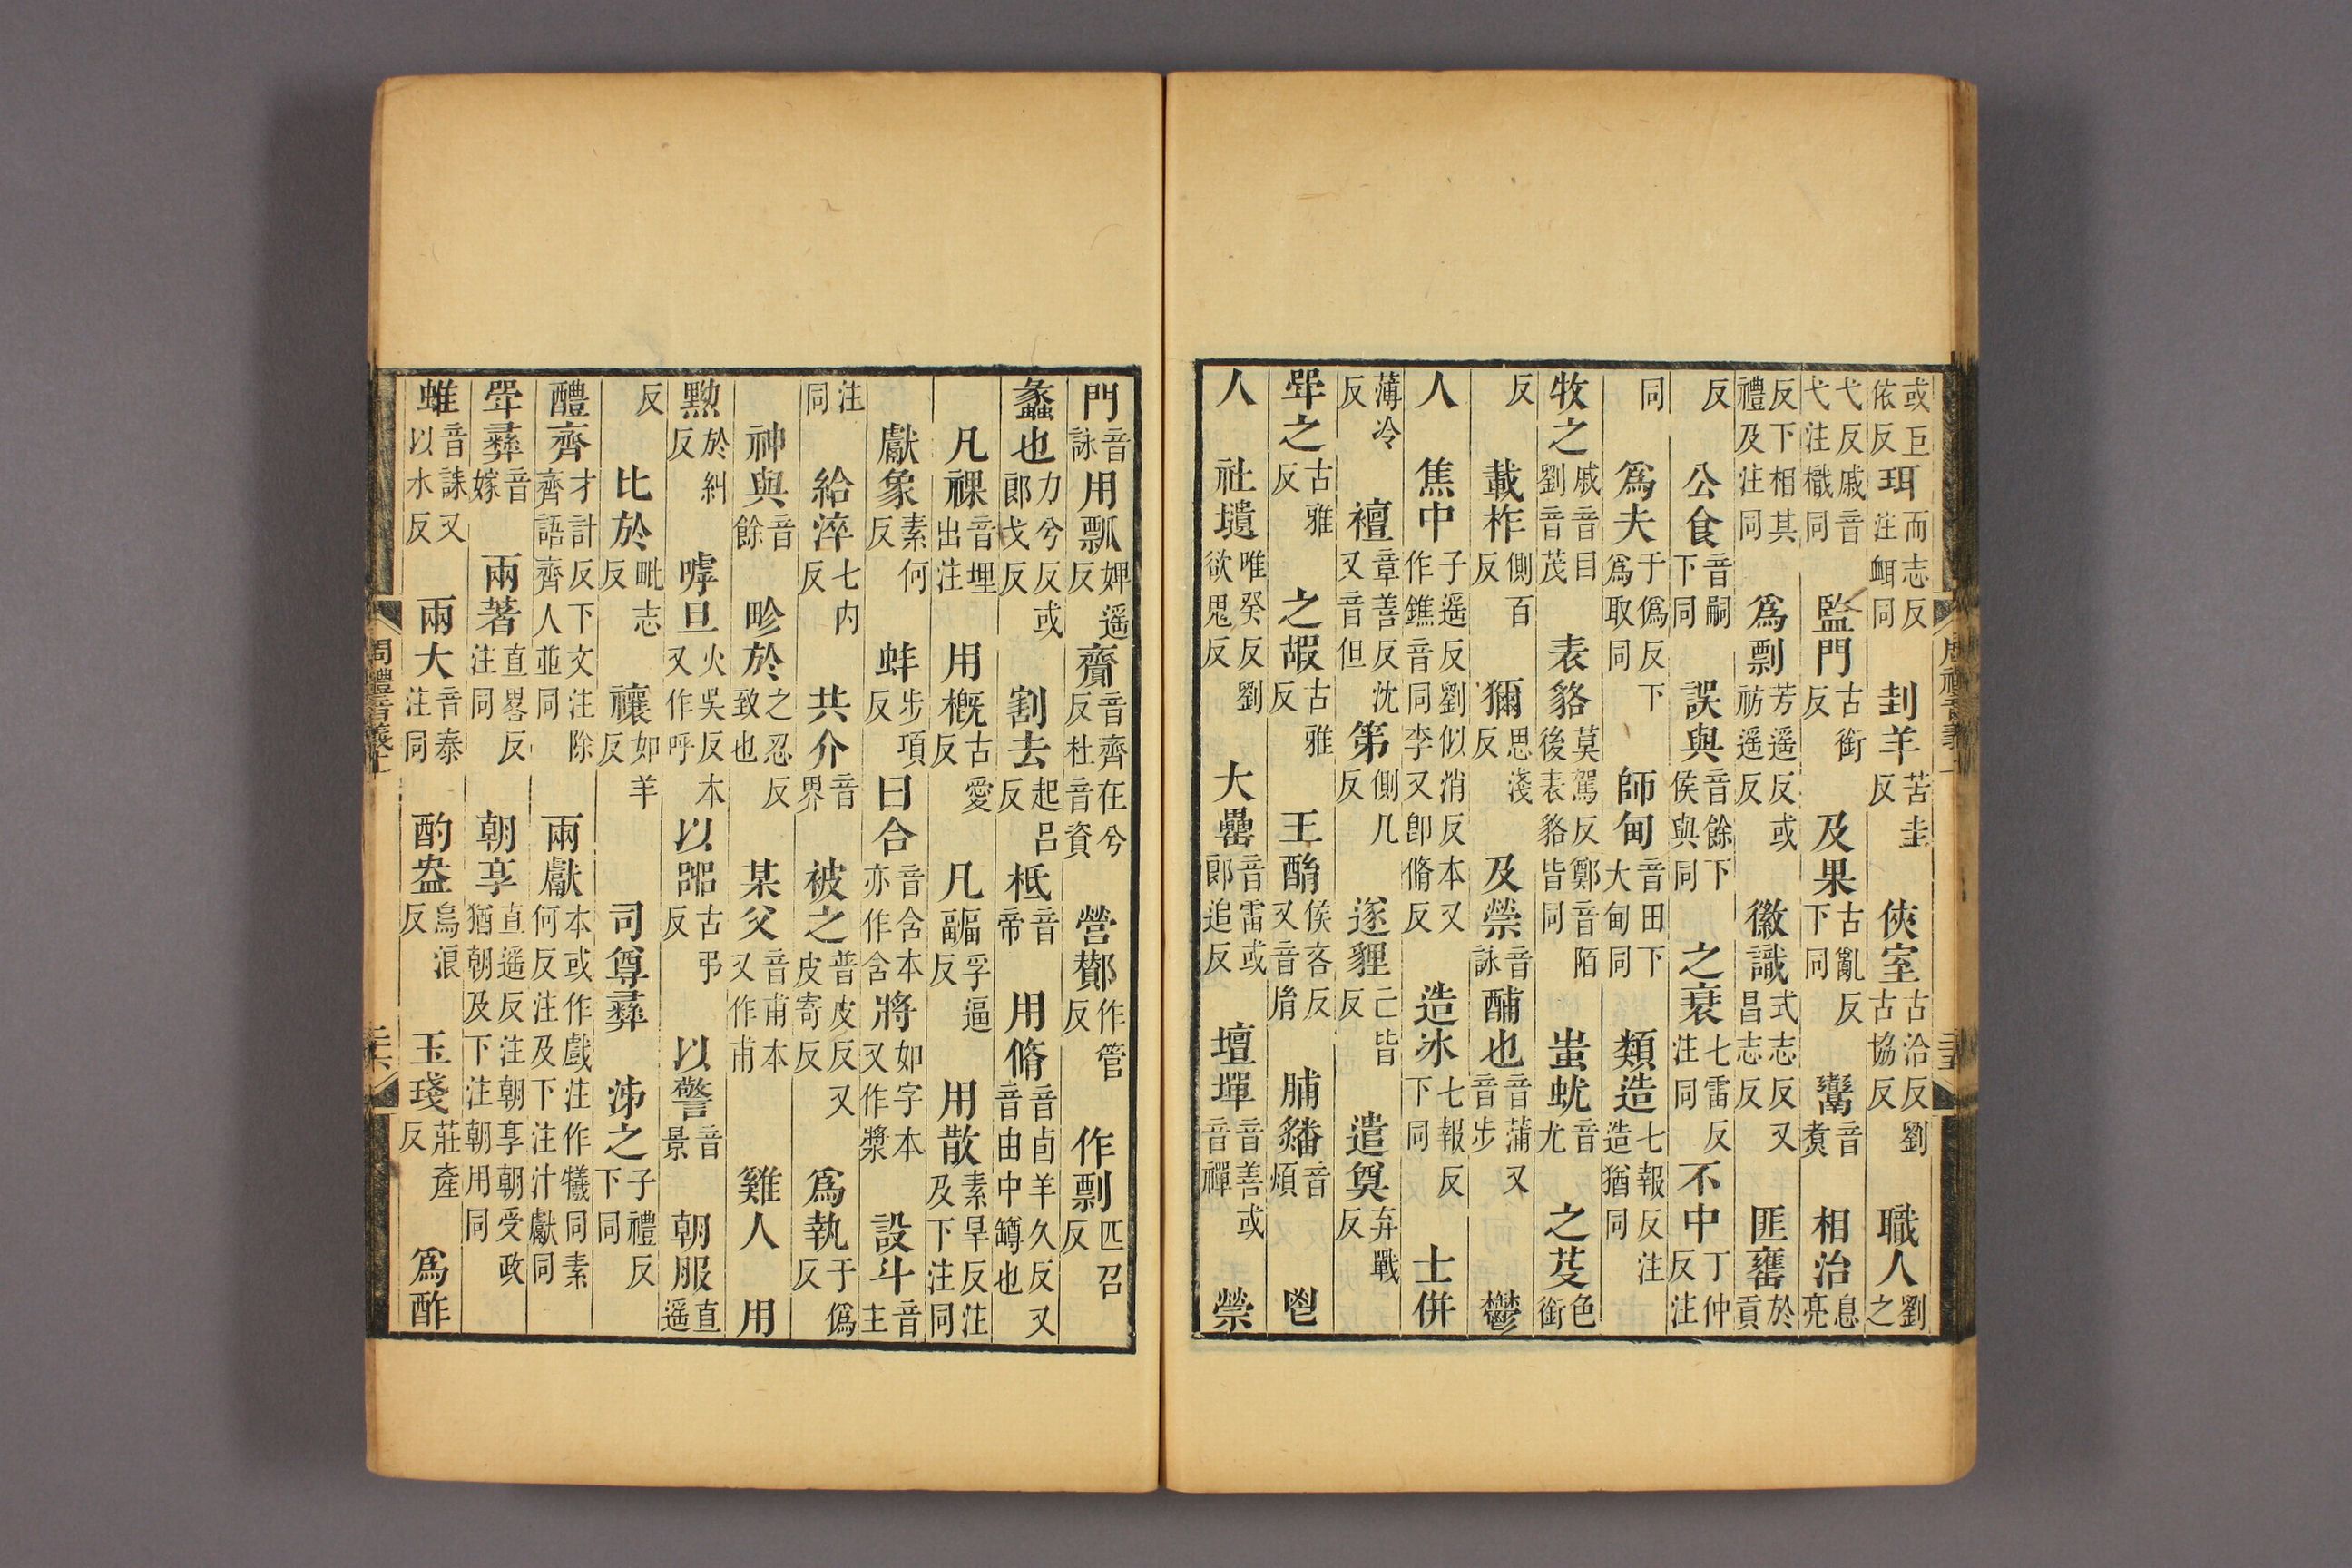 或巨依反珥而志反注衈同刲羊苦圭反俠室古洽反劉古協反職人劉之
弋反戚音弋注樴同監門古銜反及果古亂反下同鬻音煮相治息亮
反下相其禮及注同爲剽芳遥反或舫遥反徽識式志反又昌志反匪罋於貢
反公食音嗣下同誤與音餘下侯與同之衰七雷反注同不中丁仲反注
同爲夫于僞反下爲取同師甸音田下大甸同類造七報反注造猶同
牧之戚音目劉音茂表貉莫駕反鄭音陌後表貉皆同蚩蚘音尤之芟色銜
反載柞側百反獮思淺反及禜音詠酺也音蒲又音步鬱
人焦中子遥反劉似消反本又作鐎音同李又卽脩反造冰七報反下同士併
薄冷反襢章善反沈又音但第側几反遂貍亡皆反遣奠弃戰反
斝之古雅反之嘏古雅反王酳侯吝反又音胤脯音煩鬯
人社壝唯癸反劉欲鬼反大罍音雷或郎追反壇墠音善或音禪禜
門音詠用瓢婢遥反齎音齊在兮反杜音資營酇作管反作剽匹召反
蠡也力兮反或郎戈反割去起吕反柢音帝用脩音卣羊久反又音由中罇也
凡祼音埋出注用概古愛反凡疈孚逼反用散素旱反注及下注同
獻象素何反蚌步項反曰合音含本亦作含將如字本又作漿設斗音主
注同給淬七内反共介音界被之普皮反又皮寄反爲執于僞反
神與音餘畛於之忍反致也某父音甫本又作甫雞人用
黝於糾反嘑旦火吳反本又作呼以嘂古弔反以警音景朝服直遥
反比於毗志反禳如羊反司尊彝泲之子禮反下同
醴齊才計反下文注除齊語齊人並同兩獻本或作戲注作犧同素何反注及下注汁獻同
斝彝音嫁兩著直畧反注同朝享直遥反注朝享朝受政猶朝及下注朝用同
蜼音誄又以水反兩大音泰注同酌盎烏浪反玉琖莊產反爲酢
周禮音義上